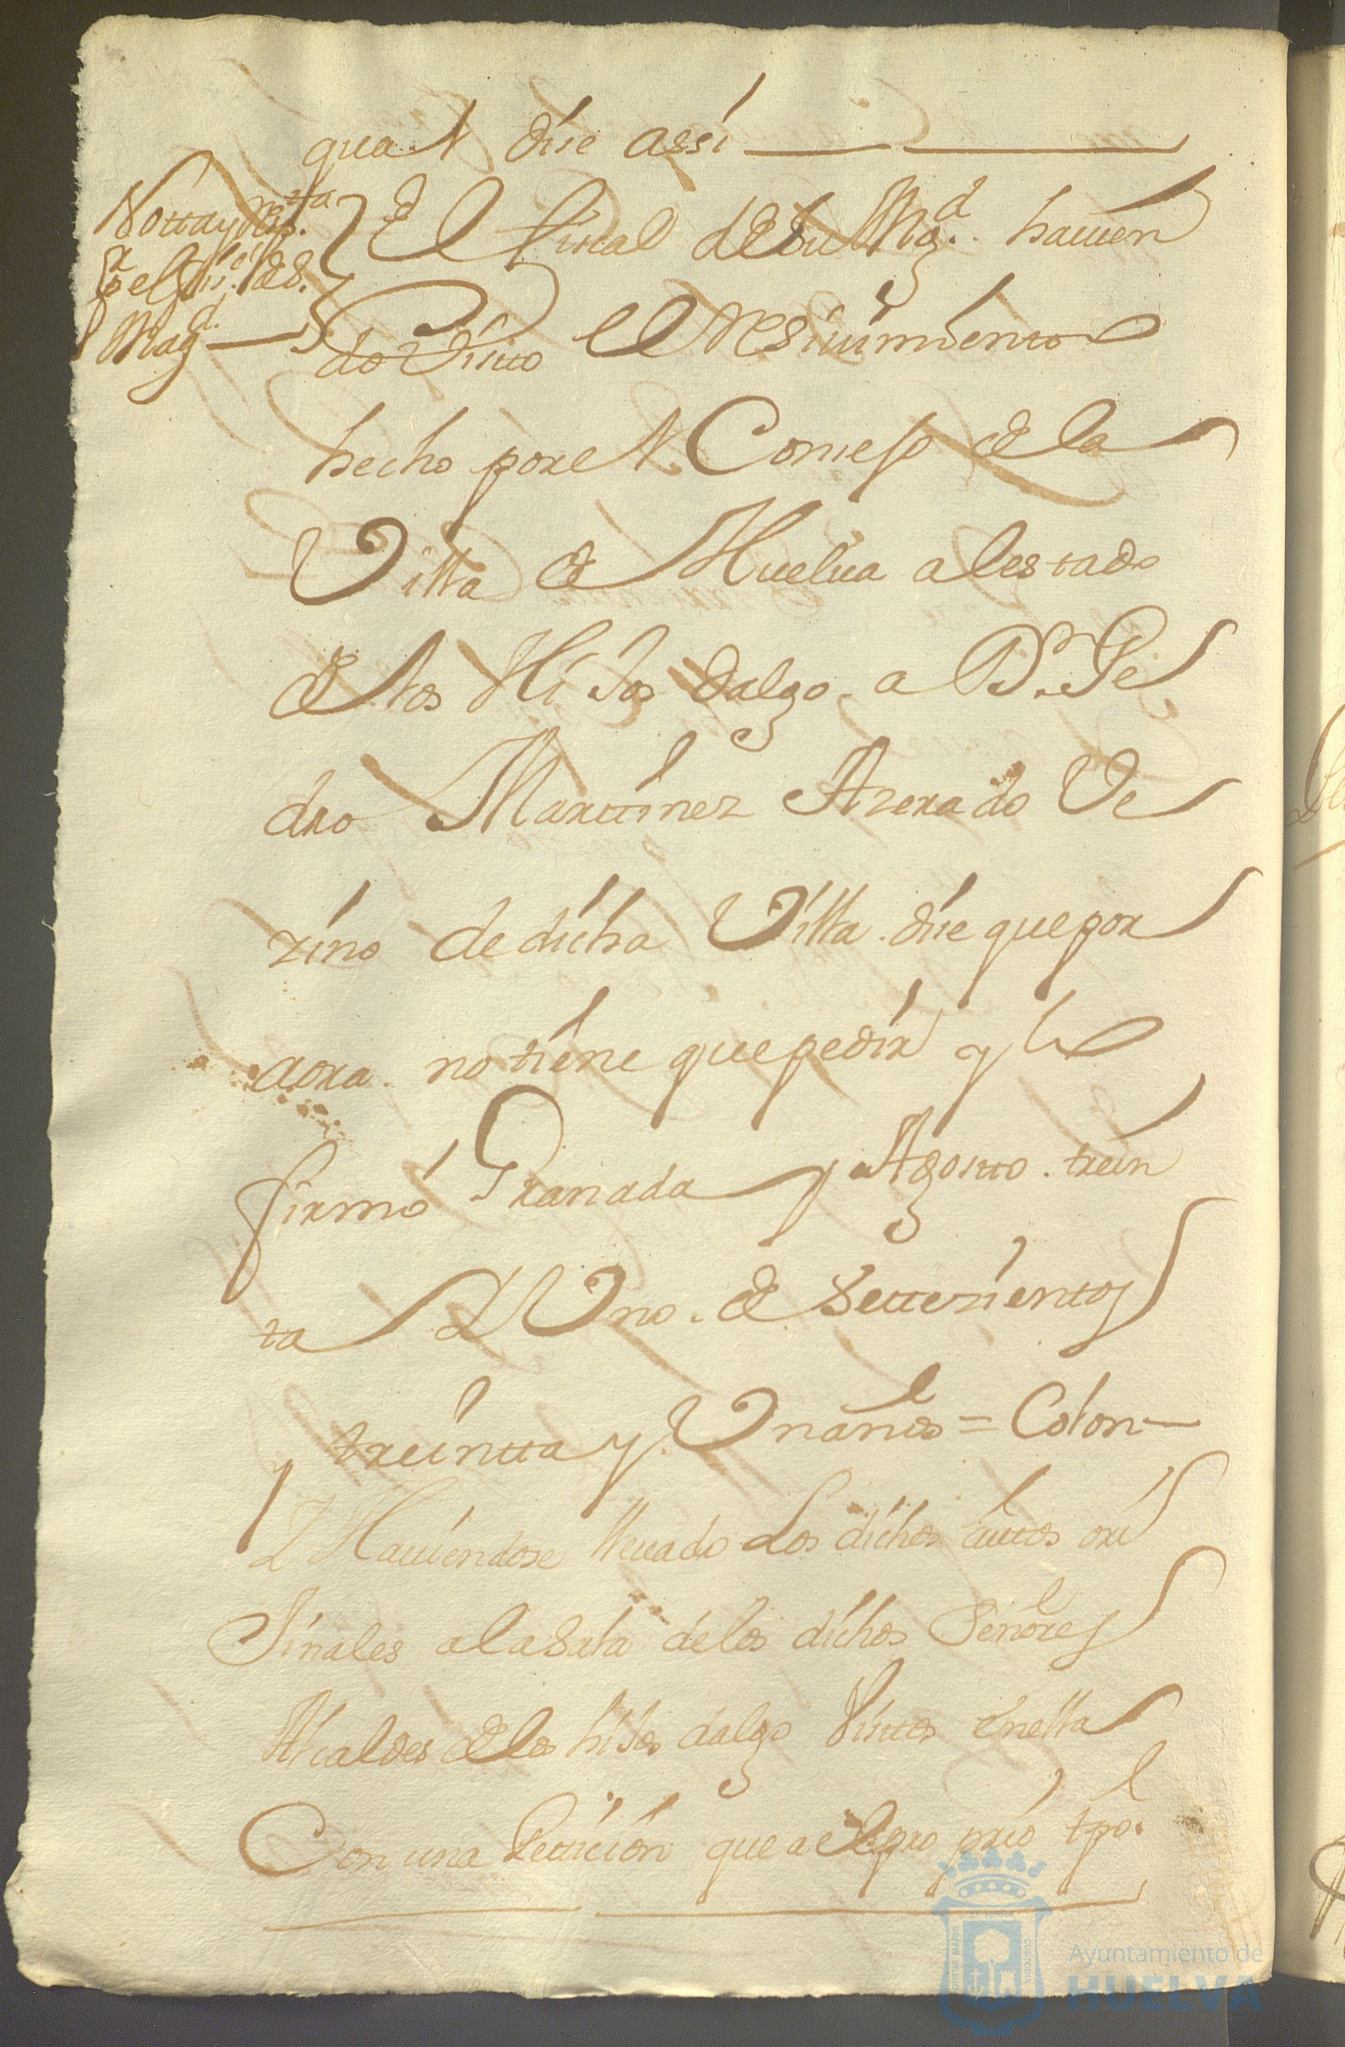 qual diçe assi
Notta y Resp.ta
el fis.l de S.
Mag.d
El fiscal de su Mag.d hauien
do Visto el resiuimiento
hecho por el Conçejo de la
Villa de Huelua al estado
de los Hijos dalgo a D.n Pe
dro Marttinez Azerado Ve
zino de dicha Villa diçe que por
aora no tiene que pedir y lo
firmó Granada y Agosto trein
ta y Uno de Settezientos
treintta y Un años = Colon
Y Hauiendose lleuado los dichos auttos ori
Jinales a la Sala de los dichos Señores
Alcaldes de los hijos dalgo Vistos en ella
Con una Petticion que a el propio tpo.
Ayuntamiento de
HUELVA